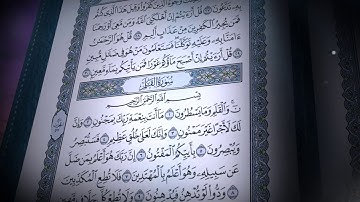 بِهِۦ تَدَّعُونَ ۝٢٧ قُلْ أَرَءَيْتُمْ إِنْ أَهْلَكَنِيَ ٱللَّهُ وَمَن مَّعِيَ أَوْ رَحِمَنَا
فَمَن يُجِيرُ ٱلْكَٰفِرِينَ مِنْ عَذَابٍ أَلِيمٍ ۝٢٨ قُلْ هُوَ ٱلرَّحْمَٰنُ
ءَامَنَّا بِهِۦ وَعَلَيْهِ تَوَكَّلْنَا فَسَتَعْلَمُونَ مَنْ هُوَ فِي ضَلَٰلٍ مُّبِينٍ
۝٢٩ قُلْ أَرَءَيْتُمْ إِنْ أَصْبَحَ مَآؤُكُمْ غَوْرًا فَمَن يَأْتِيكُم بِمَآءٍ مَّعِينٍۭ ۝٣٠
سُورَةُ ٱلْقَلَمِ
بِسْمِ ٱللَّهِ ٱلرَّحْمَٰنِ ٱلرَّحِيمِ
نٓ وَٱلْقَلَمِ وَمَا يَسْطُرُونَ ۝١ مَآ أَنتَ بِنِعْمَةِ رَبِّكَ بِمَجْنُونٍ ۝٢ وَإِنَّ
لَكَ لَأَجْرًا غَيْرَ مَمْنُونٍ ۝٣ وَإِنَّكَ لَعَلَىٰ خُلُقٍ عَظِيمٍ ۝٤ فَسَتُبْصِرُ
وَيُبْصِرُونَ ۝٥ بِأَييِّكُمُ ٱلْمَفْتُونُ ۝٦ إِنَّ رَبَّكَ هُوَ أَعْلَمُ بِمَن ضَلَّ
عَن سَبِيلِهِۦ وَهُوَ أَعْلَمُ بِٱلْمُهْتَدِينَ ۝٧ فَلَا تُطِعِ ٱلْمُكَذِّبِينَ
۝٨ وَدُّوا۟ لَوْ تُدْهِنُ فَيُدْهِنُونَ ۝٩ وَلَا تُطِعْ كُلَّ حَلَّافٍ